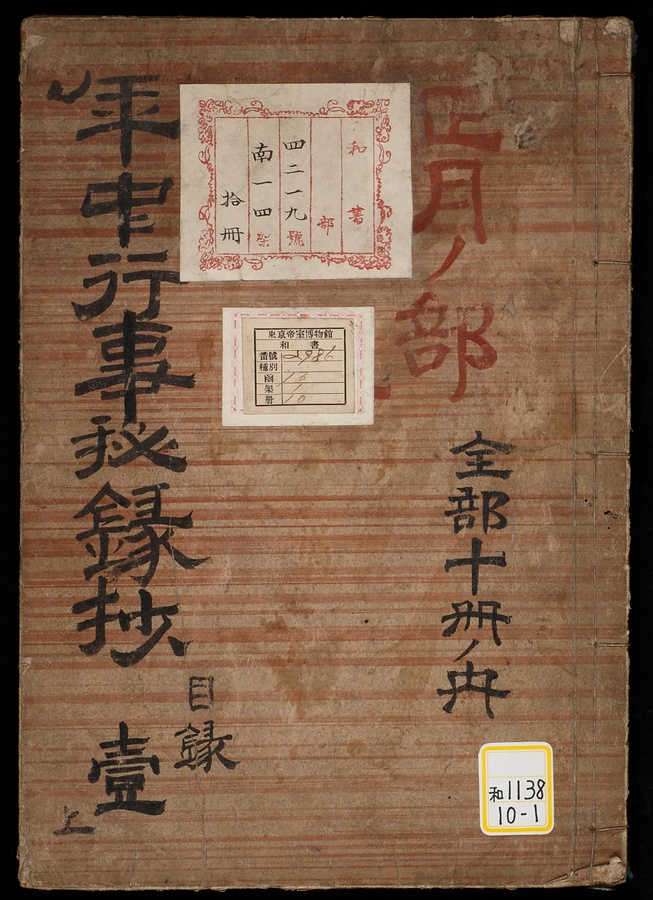 正月ノ部
全部十冊ノ内
和書
部
四二一九號
南一四架
拾冊
東京帝室博物館
和書
番號 2986
種別
函 13
架 1
册 10
年中行事秘録抄
目録
壹
上
和1138
10-1